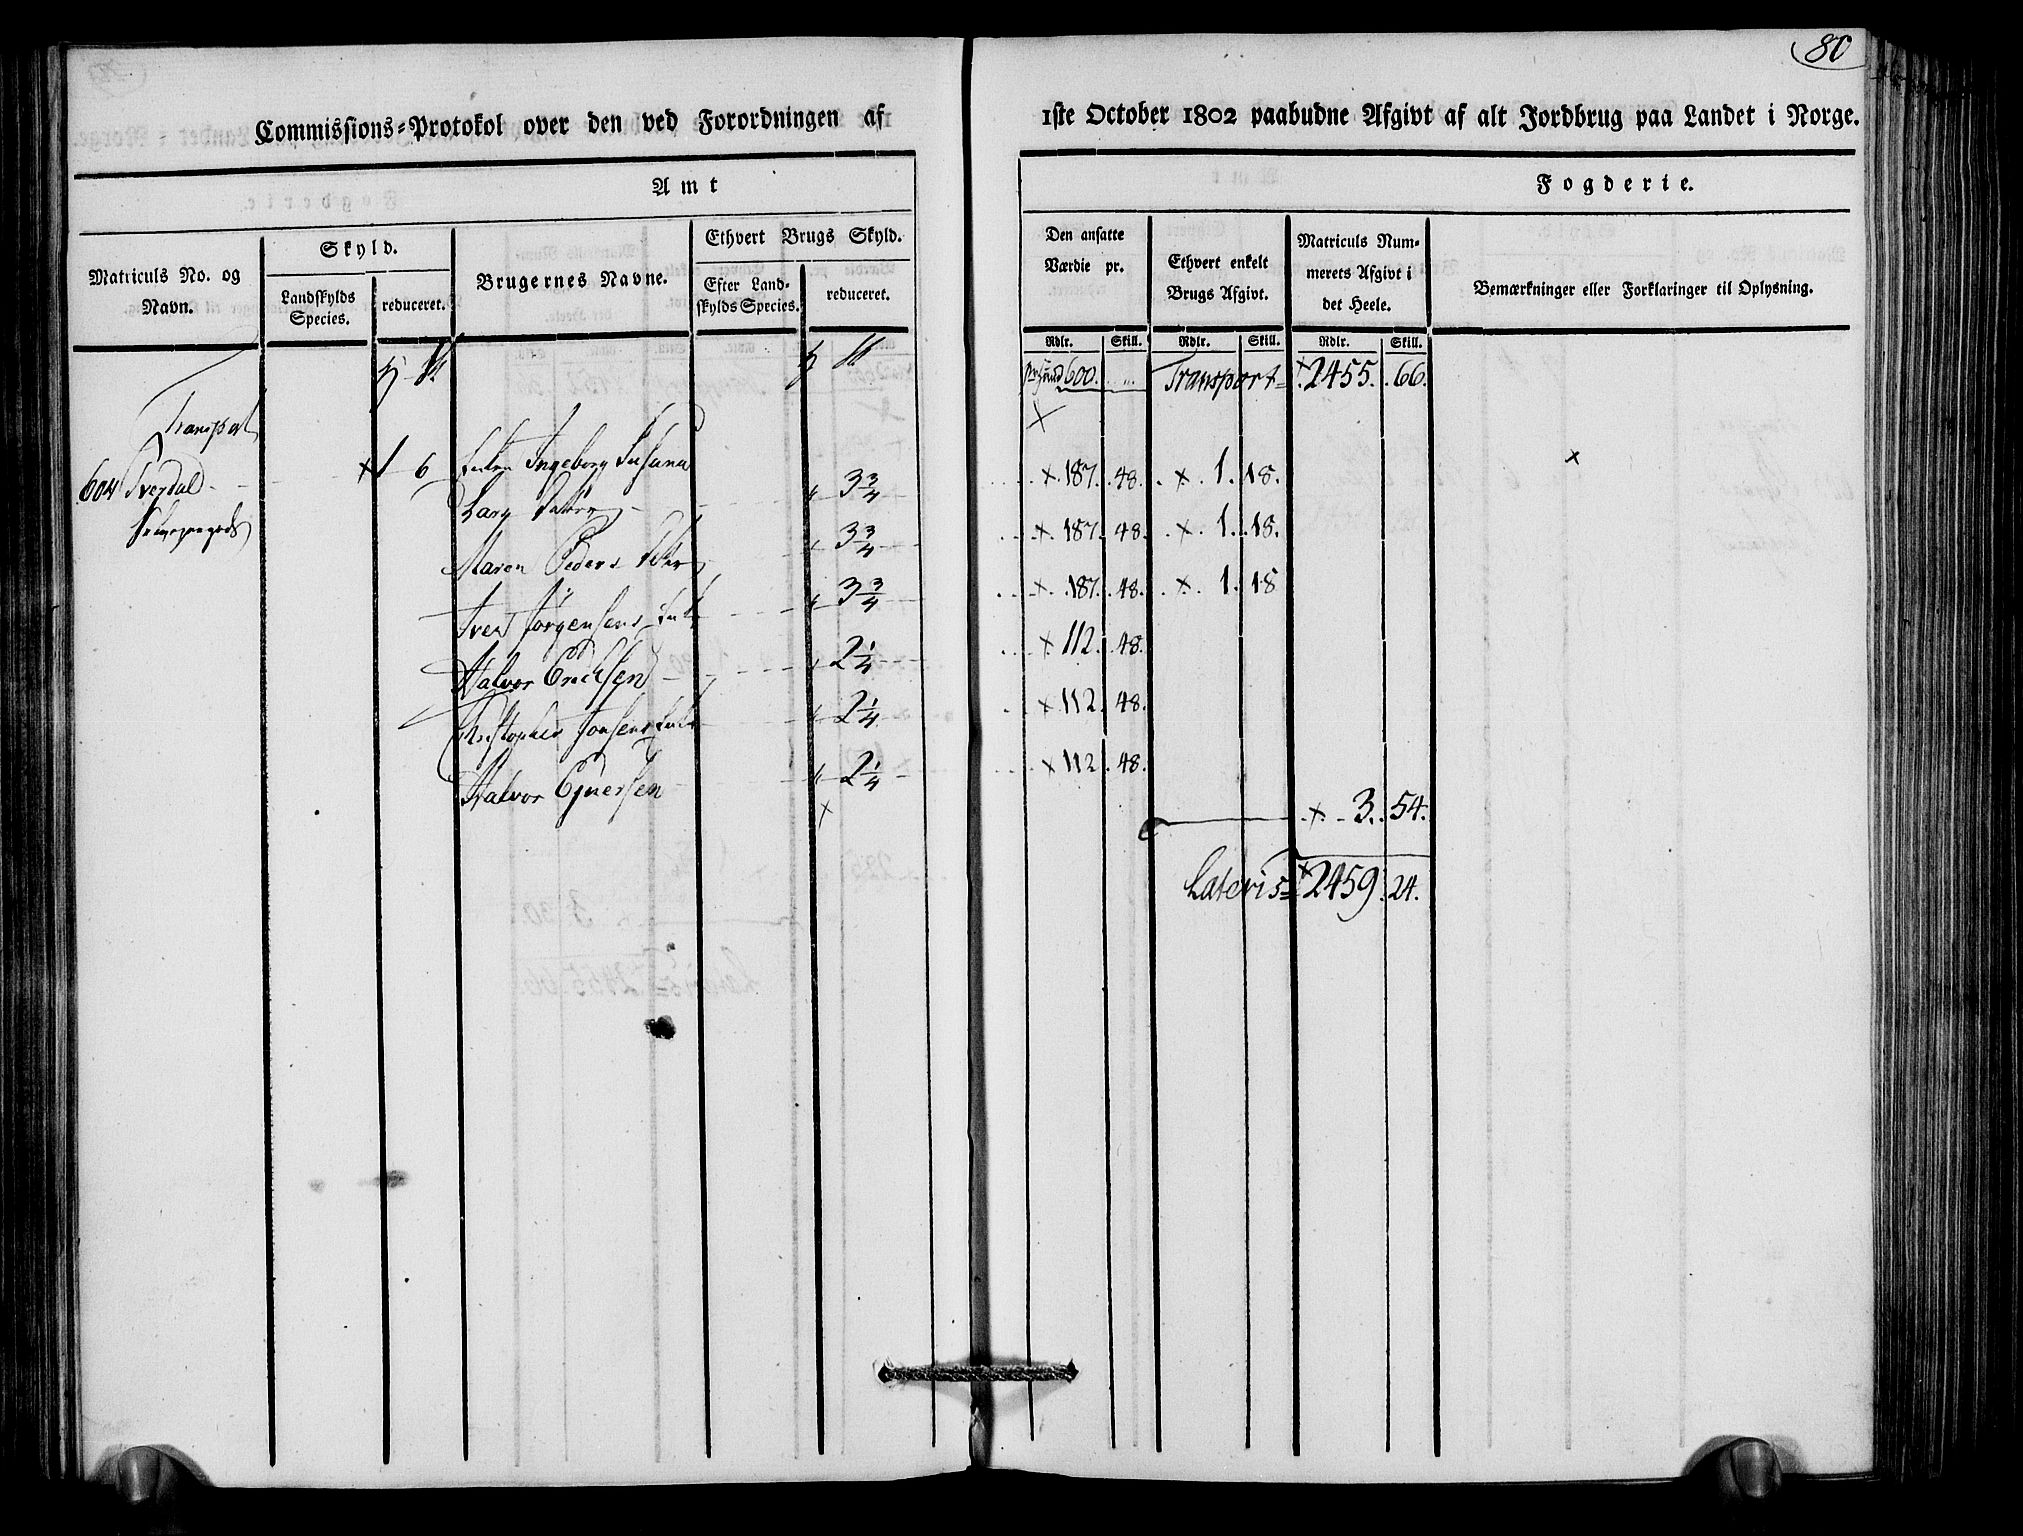 80
Commissions-Protokol over den ved Forordningen af 1ste October 1802 paabudne Afgivt af alt Jordbrug paa Landet i Norge.
Amt
Fogderie.
Matriculs No. og Navn.
Skyld.
Landskylds Species.
reduceret.
Brugernes Navne.
Ethvert Brugs Skyld.
Efter Landskylds Species.
reduceret.
Den ansatte Værdie pr.
Ethvert enkelt Brugs Afgivt.
Matriculs Nummerets Afgivt i det Heele.
Bemærkninger eller Forklaringer til Oplysning.
Rdlr. Skill. Rdlr. Skill. Rdlr. Skill.
600. Transport 2455. 66.
Transport
604 Tverdal 1 6 Enken Ingeborg Susana
Lars 3 3/4 × 187. 48. × 1. 18.
Maren Peders 3 3/4 × 187. 48. × 1. 18.
Iver Jörgensens Enke 3 3/4 × 187. 48. × 1. 18
Halvor Erichsen 2 1/4 × 112. 48.
Christopher Jonsens Enke 2 1/4 × 112. 48.
Halvor Ejversen 2 1/4 × 112. 48.
× 3. 54.
Lateris × 2459. 24.